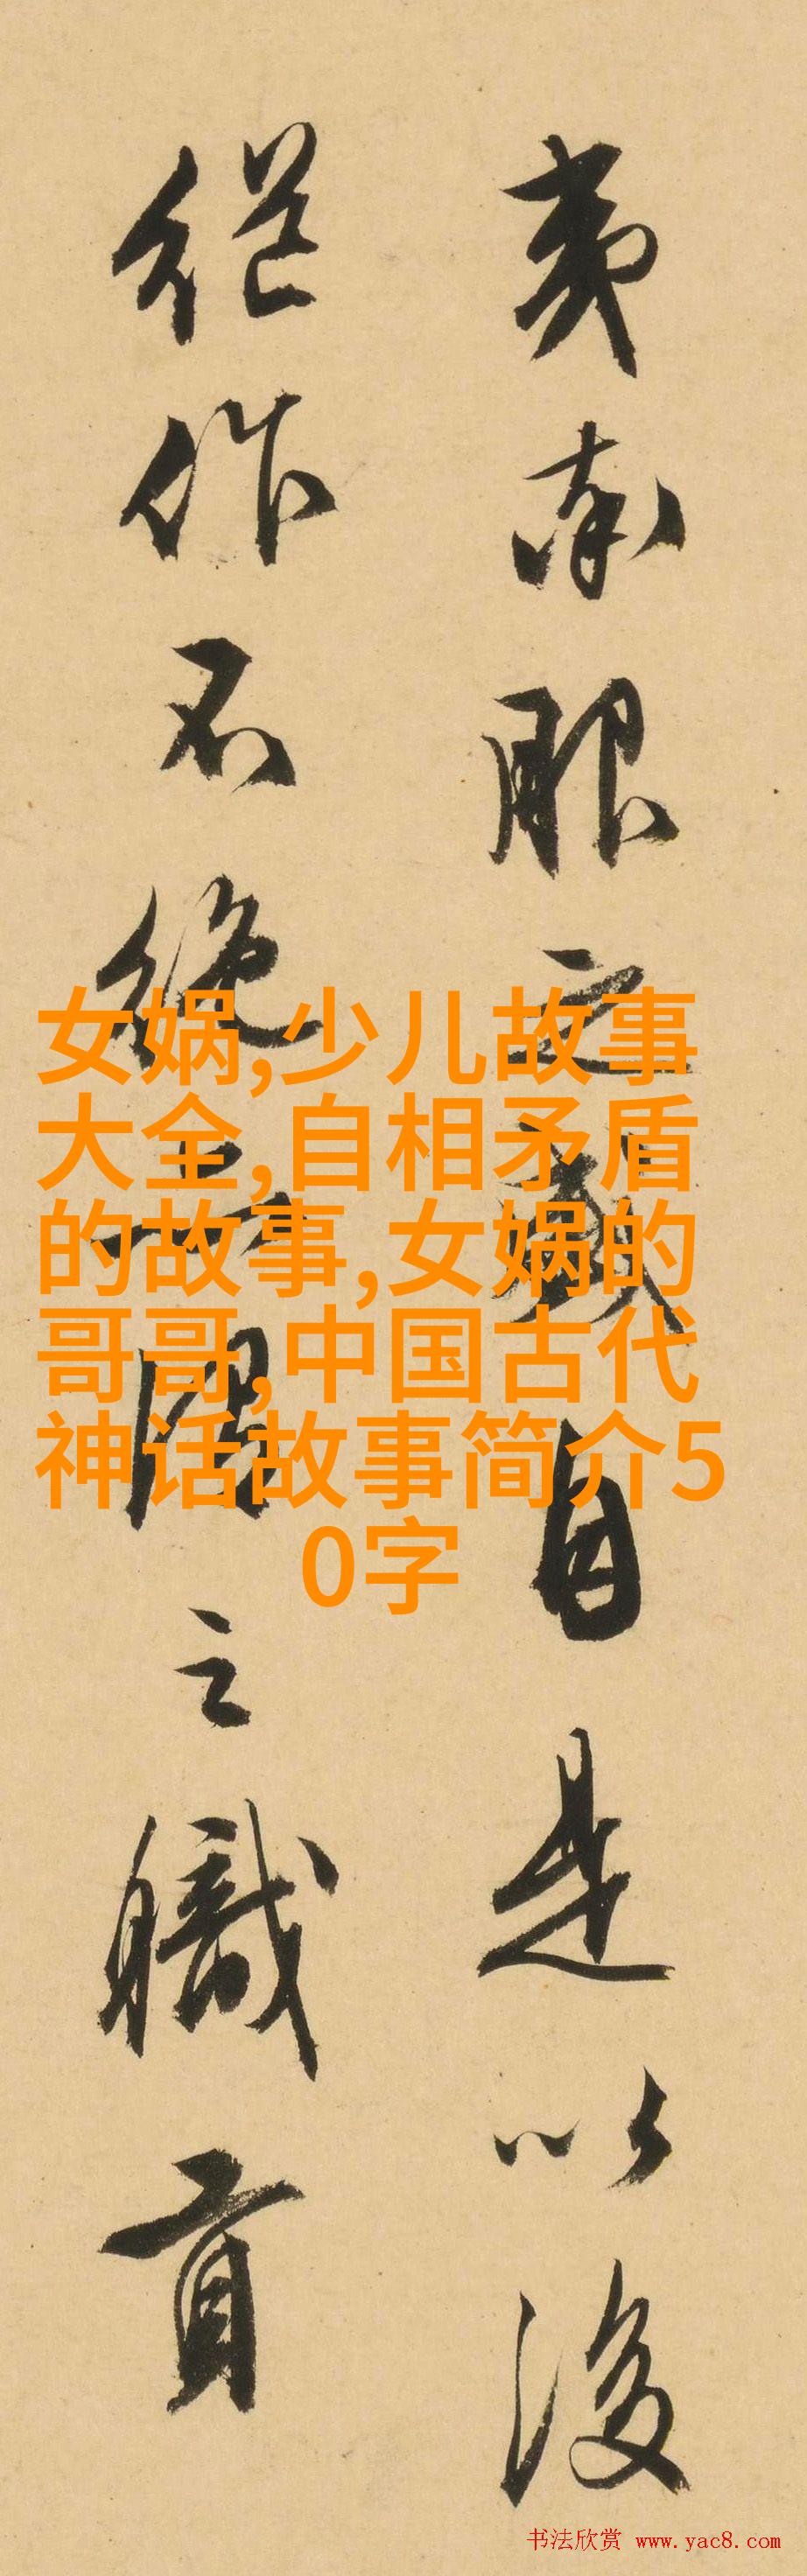 夷服之盛自是以後
継作不絶之職貢
女娲,少儿故事
大全,自相矛盾
的故事,女娲的
哥哥,中国古代
神话故事简介5
0字
书法欣赏 www.yac8.com